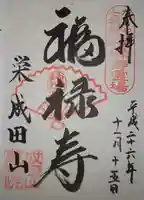 奉拝
平成二十六年
十一月十五日
福禄寿
栄成田山